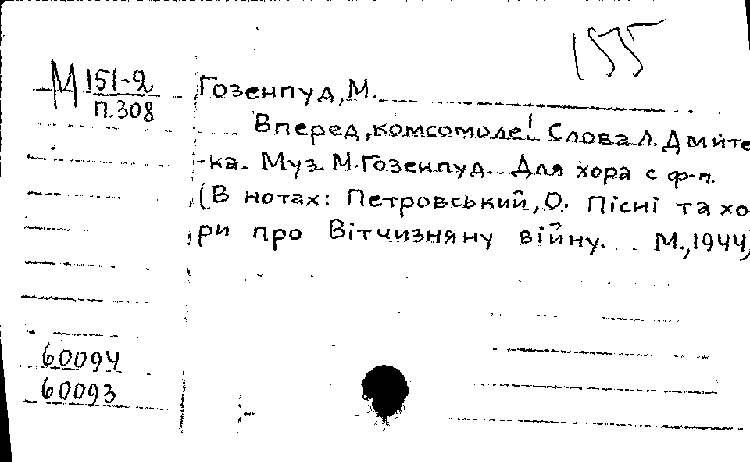 155
М 151-2
п.308
Гозенпуд, М.
Вперед, комсомоле! Слова Л. Дмите
-ка. Муз. М. Гозенпуд. Для хора с ф-п.
(В нотах: Петровський, О. Пісні та хо
ри про Вітчизняну війну. М., 1944)
60094
60093